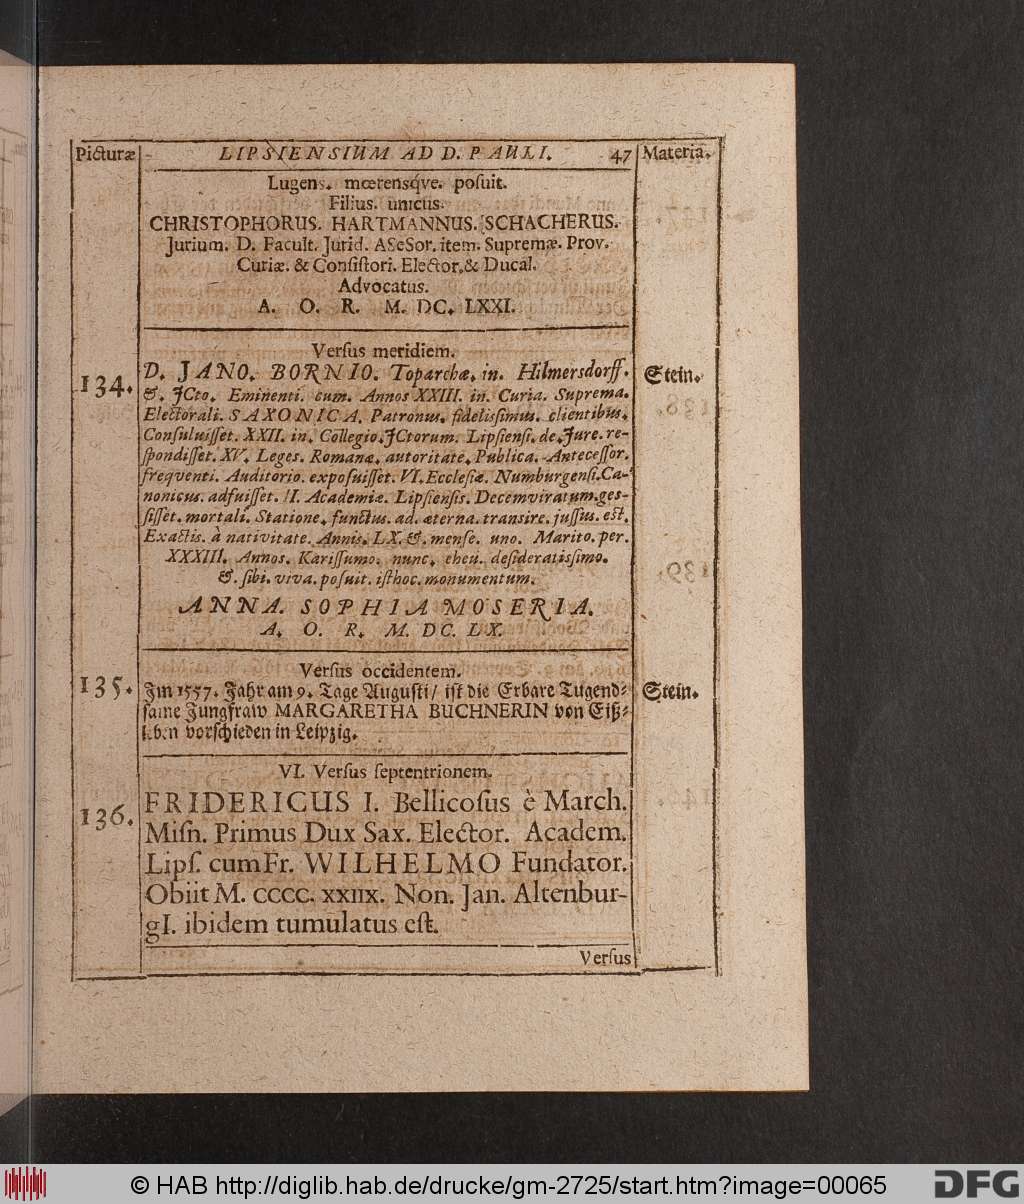 Picturæ LIPSIENSIUM AD D. PAULI. 47 Materia.
Lugens. mœrensq́ve. poſuit.
Filius. unicus.
CHRISTOPHORUS. HARTMANNUS. SCHACHERUS.
Jurium. D. Facult. Jurid. ASeSor. item. Supremæ. Prov.
Curiæ. & Conſiſtori. Elector. & Ducal.
Advocatus.
A. O. R. M. DC. LXXI.
Verſus meridiem.
134. D. JANO. BORNIO. Toparchæ. in. Hilmersdorff. Stein.
&. JCto. Eminenti. cum. Annos XXIII. in. Curia. Suprema.
Electorali. SAXONICA. Patronus. fideliſſimus. clientibus.
Conſuluiſſet. XXII. in. Collegio. JCtorum. Lipſienſi. de. Jure. re-
ſpondiſſet. XV. Leges. Romanæ. autoritate. Publica. Anteceſſor.
freqventi. Auditorio. expoſuiſſet. VI. Eccleſiæ. Numburgenſi. Ca-
nonicus. adfuiſſet. II. Academiæ. Lipſienſis. Decemviratum. ges-
ſiſſet. mortali. Statione. functus. ad. æterna. tranſire. juſſus. eſt.
Exactis. à nativitate. Annis. LX. &. menſe. uno. Marito. per.
XXXIII. Annos. Kariſſumo. nunc. eheu. deſideratiſſimo.
&. ſibi. viva. poſuit. iſthoc. monumentum.
ANNA. SOPHIA MOSERIA.
A. O. R. M. DC. LX.
Verſus occidentem.
135. Im 1557. Jahr am 9. Tage Auguſti/ iſt die Erbare Tugend- Stein.
ſame Jungfraw MARGARETHA BUCHNERIN von Eiß-
leben vorſchieden in Leipzig.
VI. Verſus ſeptentrionem.
136. FRIDERICUS I. Bellicoſus è March.
Miſn. Primus Dux Sax. Elector. Academ.
Lipſ. cum Fr. WILHELMO Fundator.
Obiit M. CCCC. XXIIX. Non. Jan. Altenbur-
gI. ibidem tumulatus eſt.
Verſus
© HAB http://diglib.hab.de/drucke/gm-2725/start.htm?image=00065
DFG